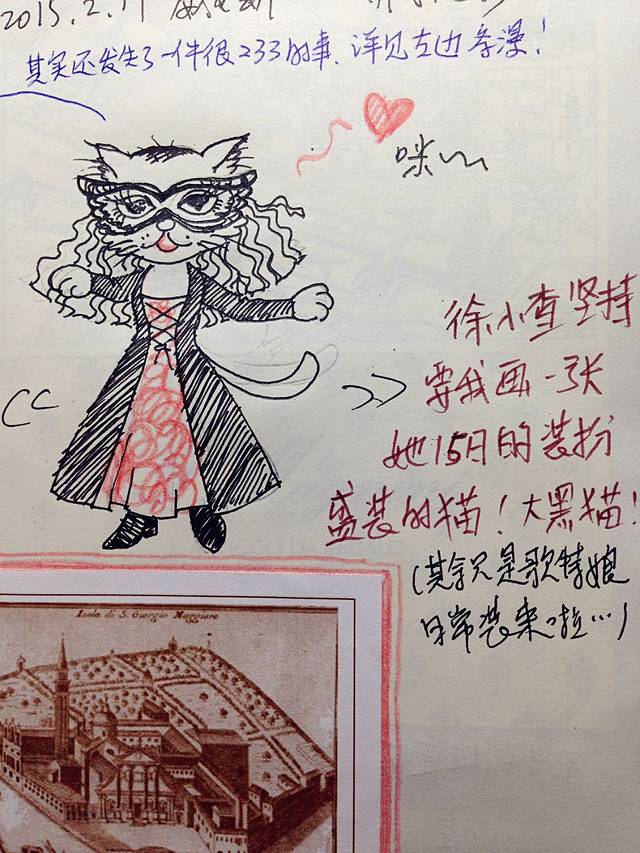 2015.2.17 威尼斯
其实还发生了一件很233的事、详见左边李漠!
咪~
徐小查坚持
要我画一张
她15日的装扮
盛装的猫!大黑猫!
(其实只是歌特娘
日常装来啦…)
Isola di S. Giorgio Maggiore